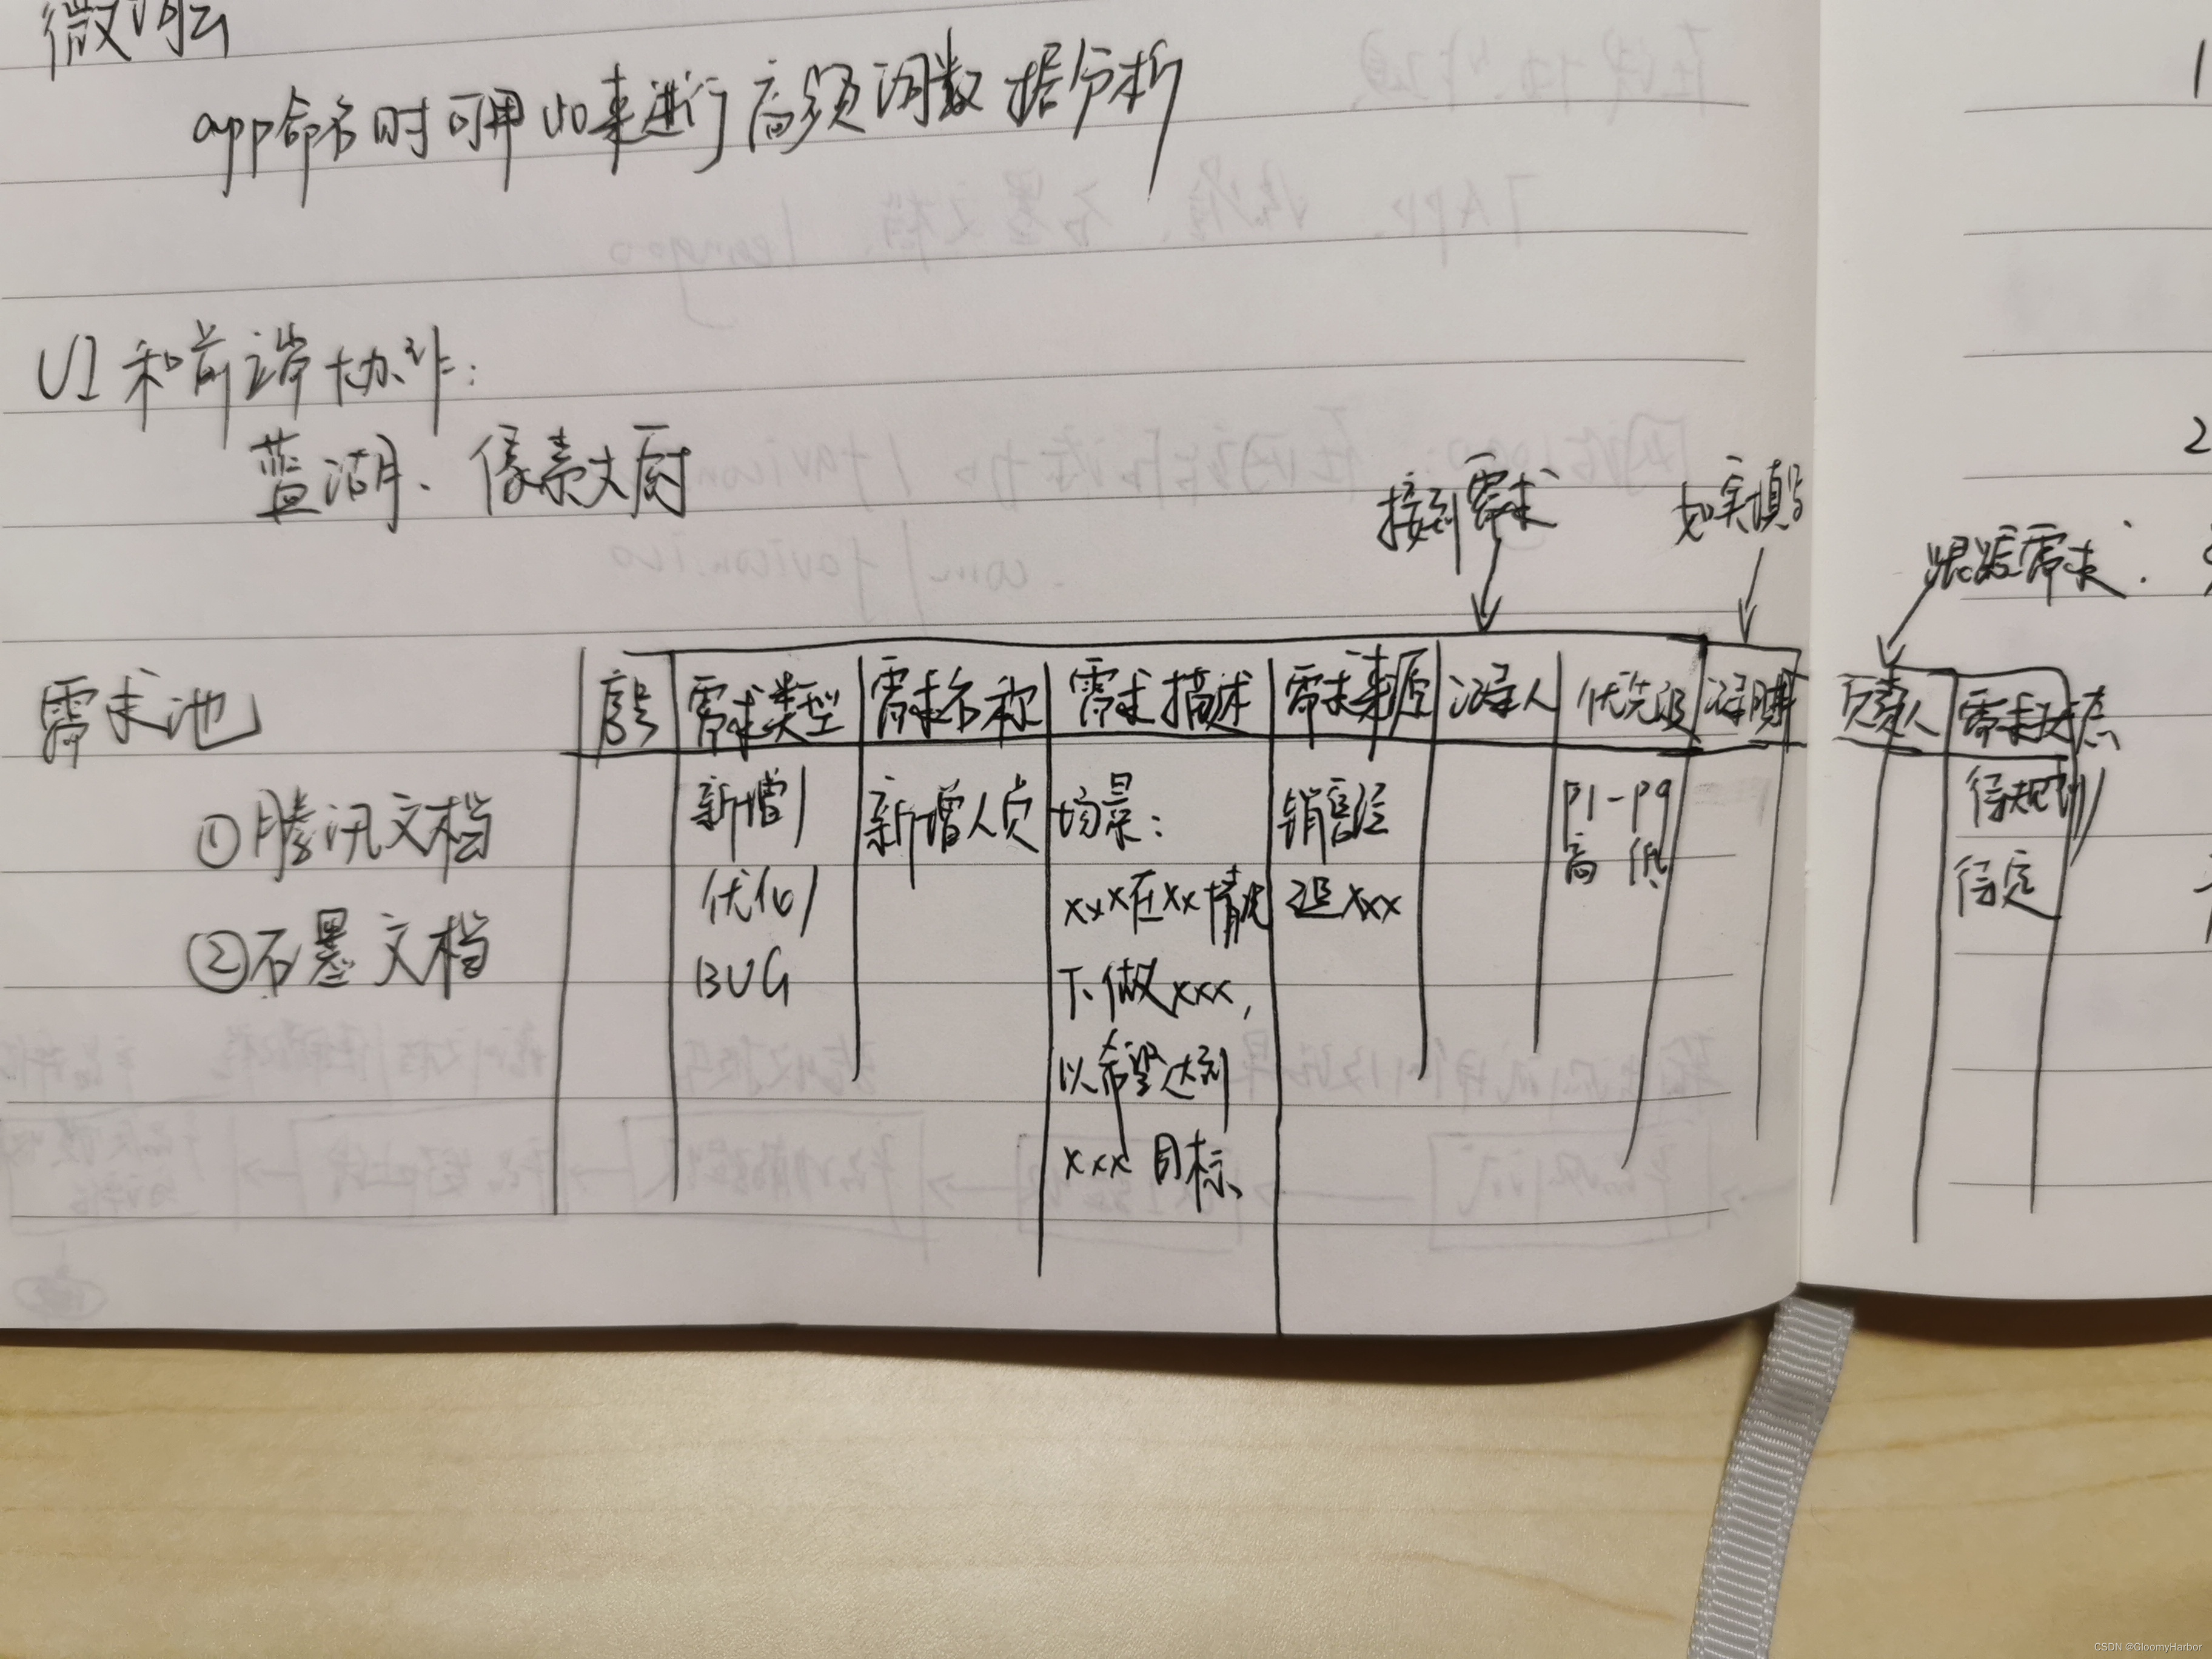 微词云
app命名时可用此来进行高频词数据分析
UI和前端协作:
蓝湖、像素大厨
接到需求
如实填写
跟踪需求:
需求池
序号 需求类型 需求名称 需求描述 需求来源 记录人 优先级 负责人 需求状态
①腾讯文档
②石墨文档
新增/
优化/
BUG
新增人员
场景:
xxx在xx情况
下做xxx,
以希望达到
xxx目标
销售经
理xxx
P1-P9
高 低
待规划/
待定
1
2
CSDN @GloomyHarbor